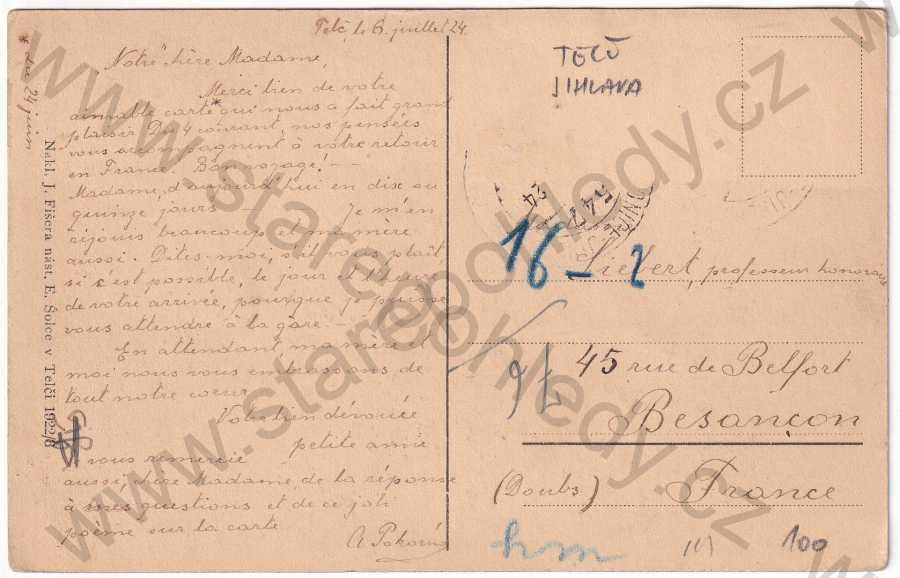 Telč, le 6. juillet 24.
* du 24 juin
Notre chère Madame,
Merci bien de votre
aimable carte* qui nous a fait grand
plaisir. Du 4 courant, nos pensées
vous accompagnent à votre retour
en France. Bon voyage! —
Madame, d'aujourd'hui en dix ou
quinze jours — Je m'en
réjouis beaucoup et ma mère
aussi. Dites-moi, s'il vous plaît
si c'est possible, le jour et l'heure
de votre arrivée, pourque je puisse
vous attendre à la gare. —
En attendant ma mère et
moi nous vous embrassons de
tout notre cœur
Votre bien dévouée
petite amie
vous remercie
aussi, chère Madame de la réponse
à mes questions et de ce joli
poème sur la carte.
A. Pokorná
Nakl. J. Fišera nást. E. Šolce v Telči 1922/8
TELČ
JIHLAVA
24
16-2
Sievert, professeur honoraire
45 rue de Belfort
Besançon
(Doubs) France
hm
100
www.starepohledy.cz